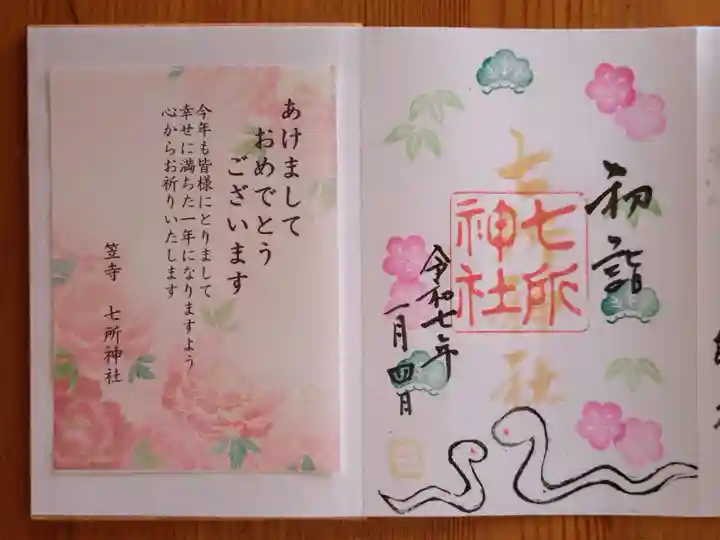 あけまして
おめでとう
ございます
今年も皆様にとりまして
幸せに満ちた一年になりますよう
心からお祈りいたします
笠寺　七所神社
初詣
七所
神社
令和七年
一月四日